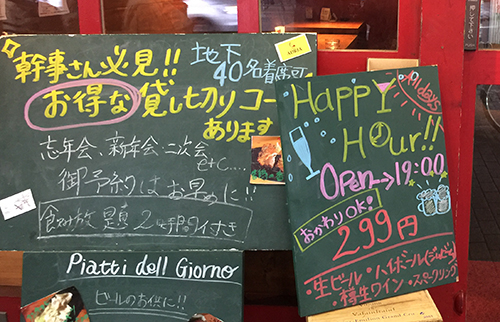 幹事さん必見!!
地下
40名着席可
お得な貸し切りコース
あります
忘年会、新年会、二次会
etc....
御予約はお早めに!!
食べ放題 2時間 付き
Piatti dell Giorno
ビールのお供に!!
All days
HAPPY
HOUR!!
OPEN→19:00
おかわりOK!
299円
・生ビール・ハイボール
・樽生ワイン・スパークリング